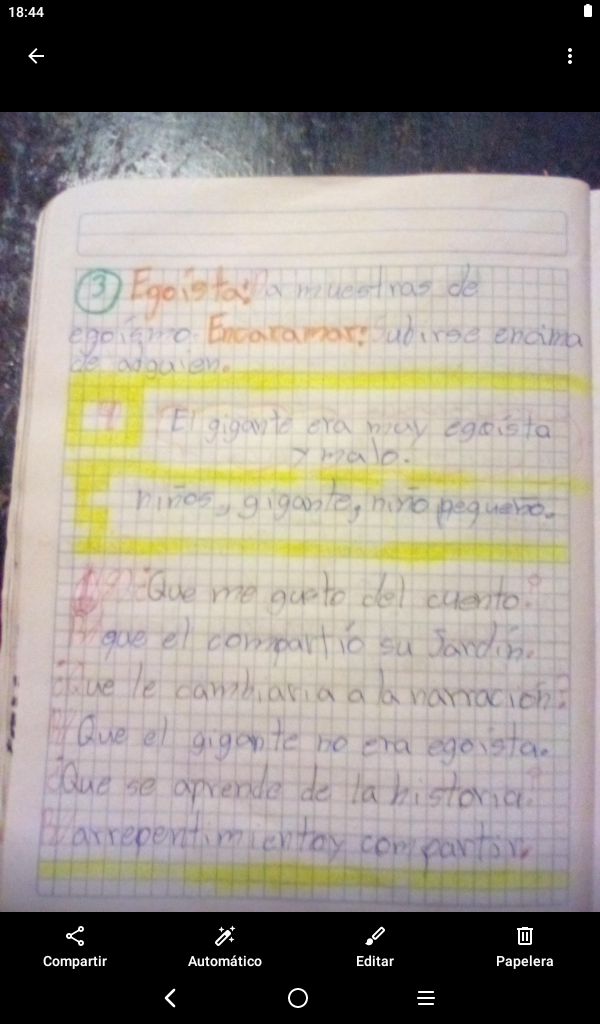 18:44
3 Egoista: Da muestras de
egoismo. Encaramar: Subirse encima
de alguien.
El gigante era muy egoista
y malo.
niños, gigante, niño pequeño.
¿Que me gusto del cuento?
R/ que el compartió su Jardín.
¿Que le cambiaria a la narración?
R/ Que el gigante no era egoista.
¿Que se aprende de la historia?
R/ arrepentimiento y compartir.
Compartir
Automático
Editar
Papelera